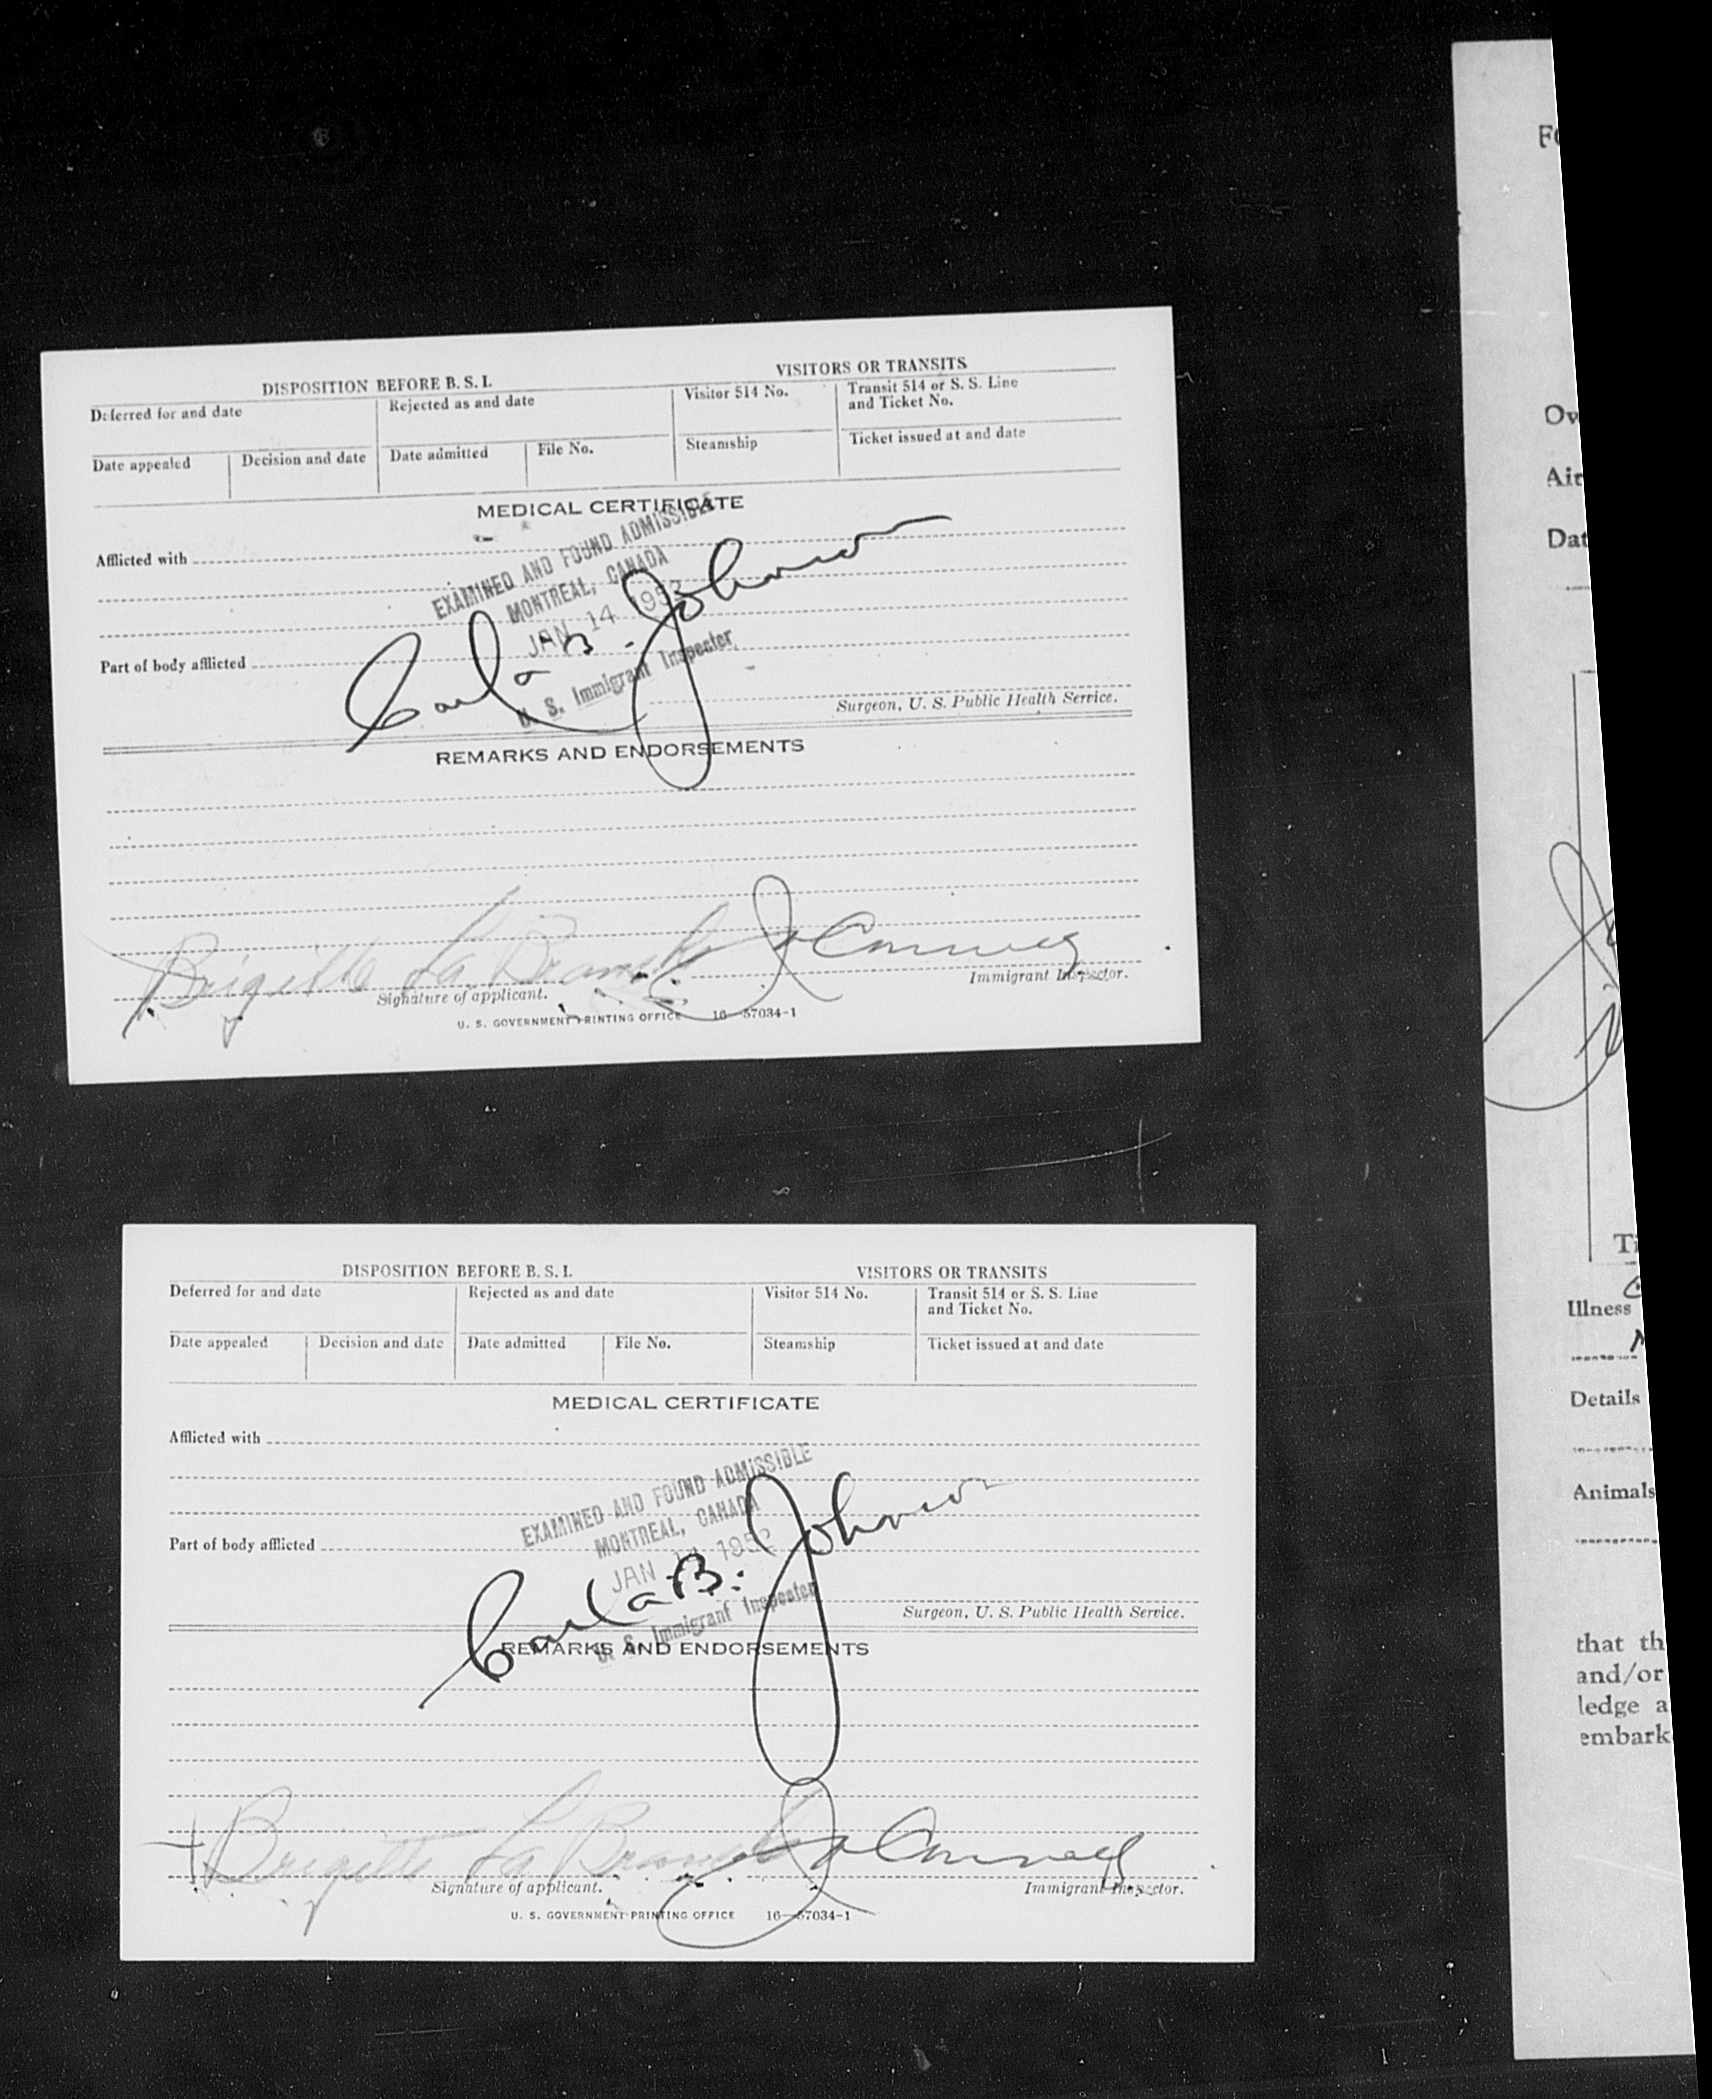 DISPOSITION BEFORE B. S. I.
VISITORS OR TRANSITS
Deferred for and date
Rejected as and date
Visitor 514 No.
Transit 514 or S. S. Line
and Ticket No.
Date appealed
Decision and date
Date admitted
File No.
Steamship
Ticket issued at and date
MEDICAL CERTIFICATE
Afflicted with
EXAMINED AND FOUND ADMISSIBLE
MONTREAL, CANADA
JAN 14 1952
U. S. Immigrant Inspector
Carla B. Johnson
Part of body afflicted
Surgeon, U. S. Public Health Service.
REMARKS AND ENDORSEMENTS
Brigitte La Branche
Signature of applicant.
Immigrant Inspector.
U. S. GOVERNMENT PRINTING OFFICE 16—57034-1
DISPOSITION BEFORE B. S. I.
VISITORS OR TRANSITS
Deferred for and date
Rejected as and date
Visitor 514 No.
Transit 514 or S. S. Line
and Ticket No.
Date appealed
Decision and date
Date admitted
File No.
Steamship
Ticket issued at and date
MEDICAL CERTIFICATE
Afflicted with
EXAMINED AND FOUND ADMISSIBLE
MONTREAL, CANADA
JAN 1952
U. S. Immigrant Inspector
Carla B. Johnson
Part of body afflicted
Surgeon, U. S. Public Health Service.
REMARKS AND ENDORSEMENTS
Brigitte La Branche
Signature of applicant.
Immigrant Inspector.
U. S. GOVERNMENT PRINTING OFFICE 16—57034-1
Ov
Air
Dat
Illness
Details
Animals
that th
and/or
ledge a
embark